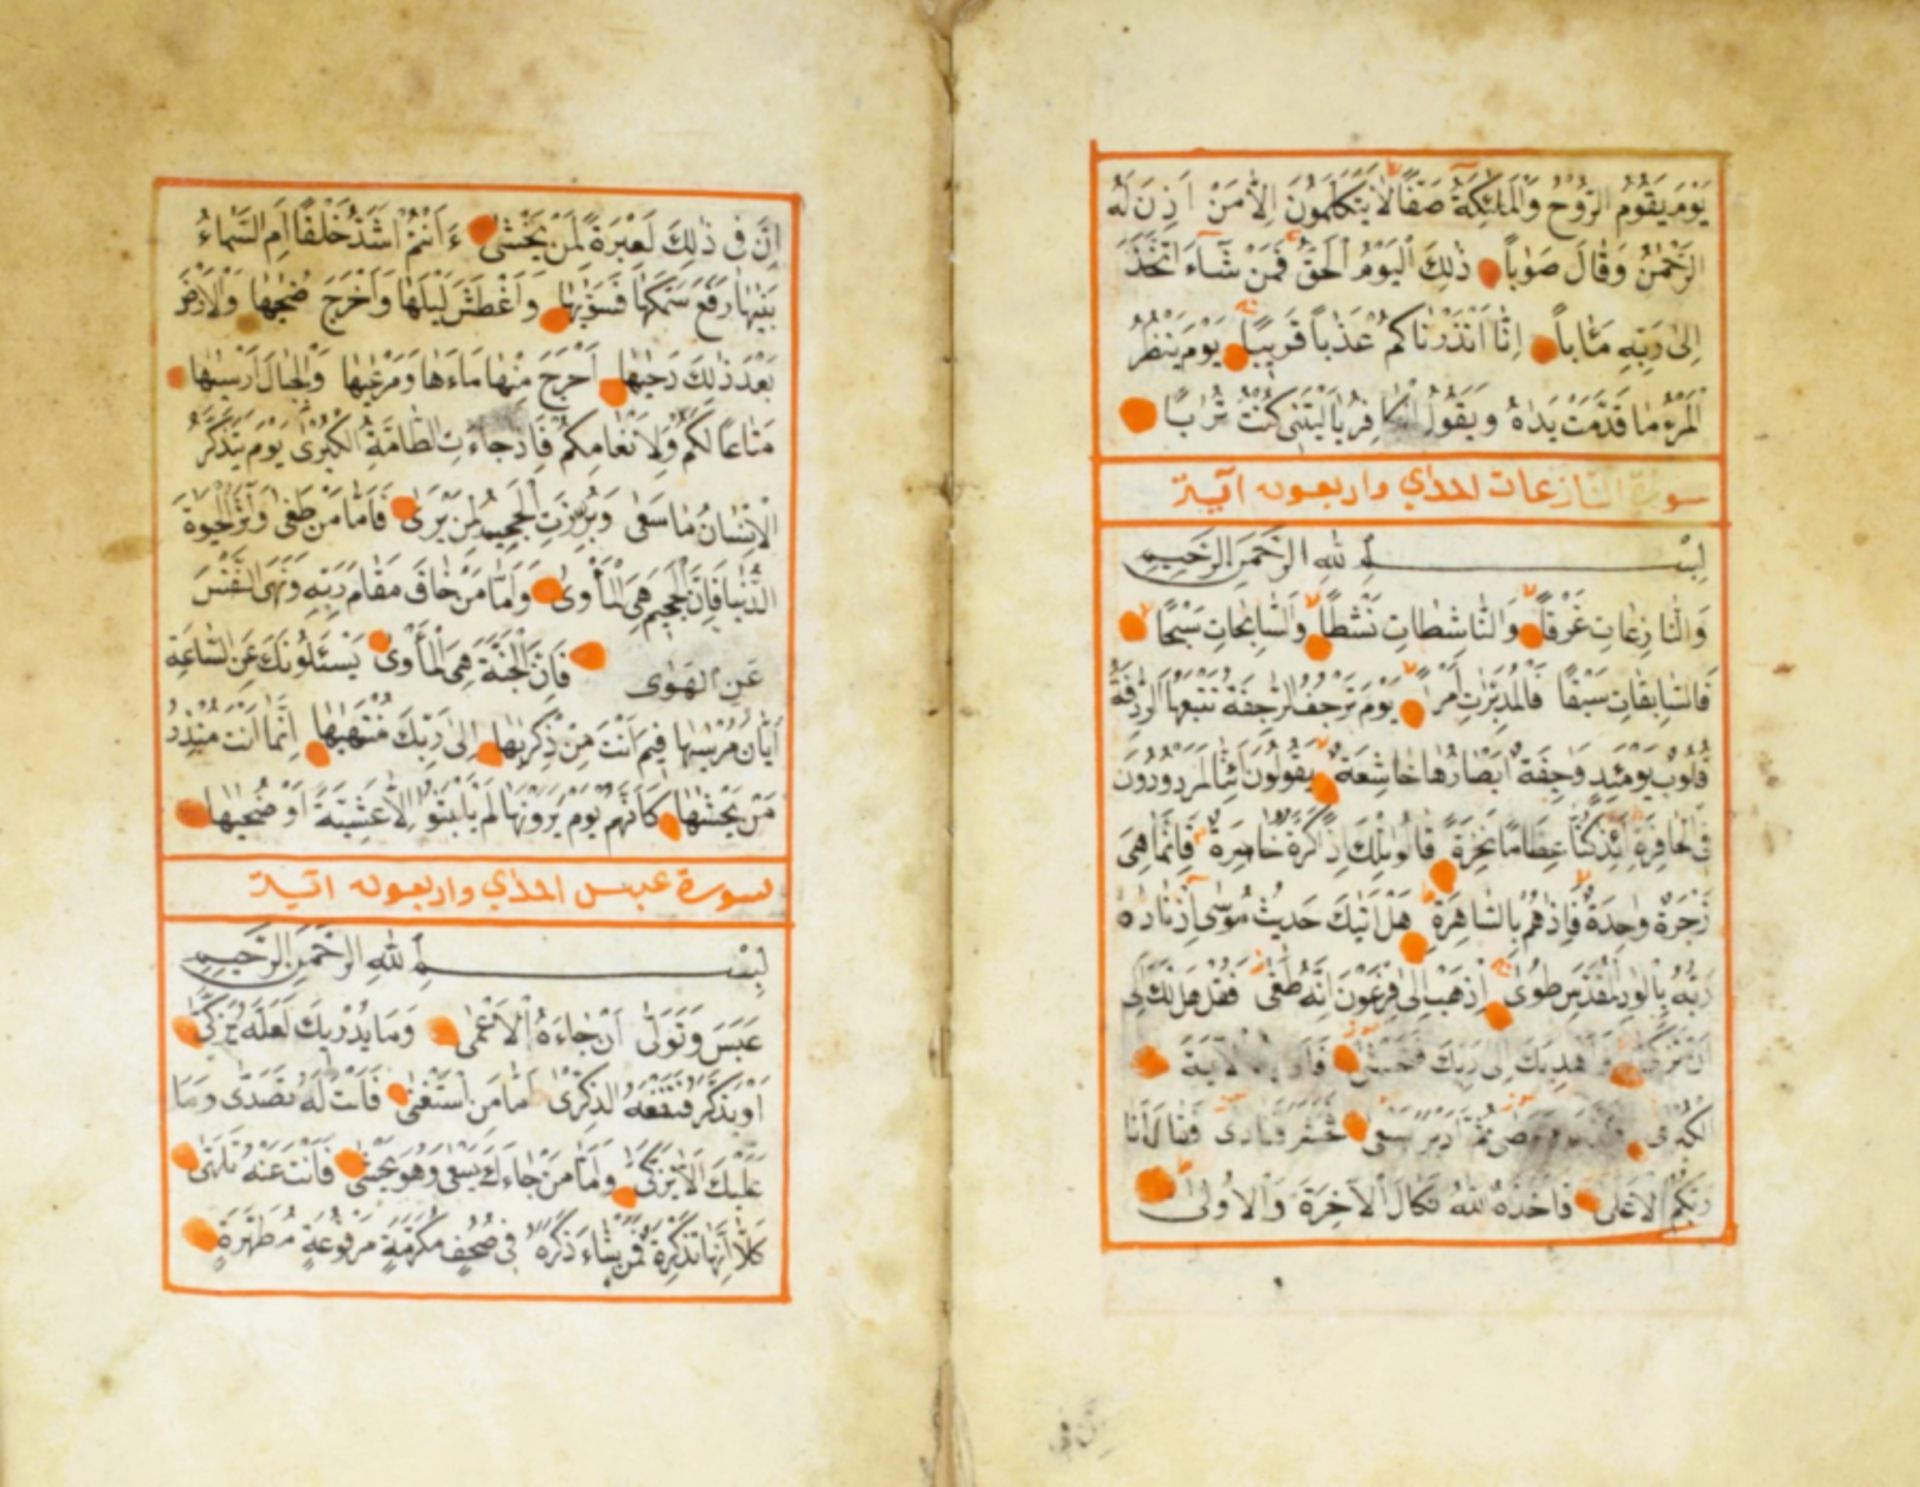 يَوْمَ يَقُومُ الرُّوحُ وَالْمَلٰئِكَةُ صَفًّا لَا يَتَكَلَّمُونَ اِلَّا مَنْ اَذِنَ لَهُ
الرَّحْمٰنُ وَقَالَ صَوَابًا ذٰلِكَ الْيَوْمُ الْحَقُّ فَمَنْ شَاءَ اتَّخَذَ
اِلٰى رَبِّهِ مَاٰبًا اِنَّا اَنْذَرْنَاكُمْ عَذَابًا قَرِيبًا يَوْمَ يَنْظُرُ
الْمَرْءُ مَا قَدَّمَتْ يَدَاهُ وَيَقُولُ الْكَافِرُ يَا لَيْتَنِي كُنْتُ تُرَابًا
سورة النازعات احداي واربعون آية
بِسْمِ اللهِ الرَّحْمٰنِ الرَّحِيمِ
وَالنَّازِعَاتِ غَرْقًا وَالنَّاشِطَاتِ نَشْطًا وَالسَّابِحَاتِ سَبْحًا
فَالسَّابِقَاتِ سَبْقًا فَالْمُدَبِّرَاتِ اَمْرًا يَوْمَ تَرْجُفُ الرَّاجِفَةُ تَتْبَعُهَا الرَّادِفَةُ
قُلُوبٌ يَوْمَئِذٍ وَاجِفَةٌ اَبْصَارُهَا خَاشِعَةٌ يَقُولُونَ ءَاِنَّا لَمَرْدُودُونَ
فِي الْحَافِرَةِ ءَاِذَا كُنَّا عِظَامًا نَخِرَةً قَالُوا تِلْكَ اِذًا كَرَّةٌ خَاسِرَةٌ فَاِنَّمَا هِيَ
زَجْرَةٌ وَاحِدَةٌ فَاِذَا هُمْ بِالسَّاهِرَةِ هَلْ اَتٰيكَ حَدِيثُ مُوسٰى اِذْ نَادٰاهُ
رَبُّهُ بِالْوَادِ الْمُقَدَّسِ طُوًى اِذْهَبْ اِلٰى فِرْعَوْنَ اِنَّهُ طَغٰى فَقُلْ هَلْ لَكَ اِلٰى
اَنْ تَزَكّٰى وَاَهْدِيَكَ اِلٰى رَبِّكَ فَتَخْشٰى فَاَرٰيهُ الْاٰيَةَ
الْكُبْرٰى ثُمَّ اَدْبَرَ يَسْعٰى فَحَشَرَ فَنَادٰى فَقَالَ اَنَا
رَبُّكُمُ الْاَعْلٰى فَاَخَذَهُ اللهُ نَكَالَ الْاٰخِرَةِ وَالْاُولٰى
اِنَّ فِي
اِنَّ فِي ذٰلِكَ لَعِبْرَةً لِمَنْ يَخْشٰى ءَاَنْتُمْ اَشَدُّ خَلْقًا اَمِ السَّمَاءُ
بَنٰيهَا رَفَعَ سَمْكَهَا فَسَوّٰيهَا وَاَغْطَشَ لَيْلَهَا وَاَخْرَجَ ضُحٰيهَا وَالْاَرْضَ
بَعْدَ ذٰلِكَ دَحٰيهَا اَخْرَجَ مِنْهَا مَاءَهَا وَمَرْعٰيهَا وَالْجِبَالَ اَرْسٰيهَا
مَتَاعًا لَكُمْ وَلِاَنْعَامِكُمْ فَاِذَا جَاءَتِ الطَّامَّةُ الْكُبْرٰى يَوْمَ يَتَذَكَّرُ
الْاِنْسَانُ مَا سَعٰى وَبُرِّزَتِ الْجَحِيمُ لِمَنْ يَرٰى فَاَمَّا مَنْ طَغٰى وَاٰثَرَ الْحَيٰوةَ
الدُّنْيَا فَاِنَّ الْجَحِيمَ هِيَ الْمَأْوٰى وَاَمَّا مَنْ خَافَ مَقَامَ رَبِّهِ وَنَهَى النَّفْسَ
عَنِ الْهَوٰى فَاِنَّ الْجَنَّةَ هِيَ الْمَأْوٰى يَسْئَلُونَكَ عَنِ السَّاعَةِ
اَيَّانَ مُرْسٰيهَا فِيمَ اَنْتَ مِنْ ذِكْرٰيهَا اِلٰى رَبِّكَ مُنْتَهٰيهَا اِنَّمَا اَنْتَ مُنْذِرُ
مَنْ يَخْشٰيهَا كَاَنَّهُمْ يَوْمَ يَرَوْنَهَا لَمْ يَلْبَثُوا اِلَّا عَشِيَّةً اَوْ ضُحٰيهَا
سورة عبس احداي واربعون آية
بِسْمِ اللهِ الرَّحْمٰنِ الرَّحِيمِ
عَبَسَ وَتَوَلّٰى اَنْ جَاءَهُ الْاَعْمٰى وَمَا يُدْرِيكَ لَعَلَّهُ يَزَّكّٰى
اَوْ يَذَّكَّرُ فَتَنْفَعَهُ الذِّكْرٰى اَمَّا مَنِ اسْتَغْنٰى فَاَنْتَ لَهُ تَصَدّٰى وَمَا
عَلَيْكَ اَلَّا يَزَّكّٰى وَاَمَّا مَنْ جَاءَكَ يَسْعٰى وَهُوَ يَخْشٰى فَاَنْتَ عَنْهُ تَلَهّٰى
كَلَّا اِنَّهَا تَذْكِرَةٌ فَمَنْ شَاءَ ذَكَرَهُ فِي صُحُفٍ مُكَرَّمَةٍ مَرْفُوعَةٍ مُطَهَّرَةٍ